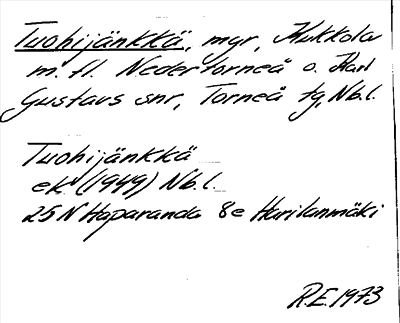 Tuohijänkkä, myr, Kukkola
m. fl. Nedertorneå o. Karl
Gustavs snr, Torneå tg, Nb.l.
Tuohijänkkä
ek. (1949) Nb.l.
25 N Haparanda 8e Harilanmäki
R.E. 1973